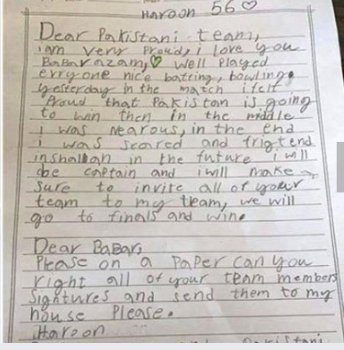 Haroon 56♡
Dear Pakistani team,
iam very proud, i love you
BaBar azam,♡ well played
evryone nice batting, bowling
yesterday in the match i felt
Proud that Pakistan is going
to win then in the middle
i was nearous, in the end
i was scared and frigtend
inshallah in the future i will
be captain and iwill make
sure to invite all of your
team to my team, we will
go to finals and win.
Dear BaBar,
Please on a Paper can you
right all of your team members
Signtures and send them to my
house Please.
Haroon
Pakistani